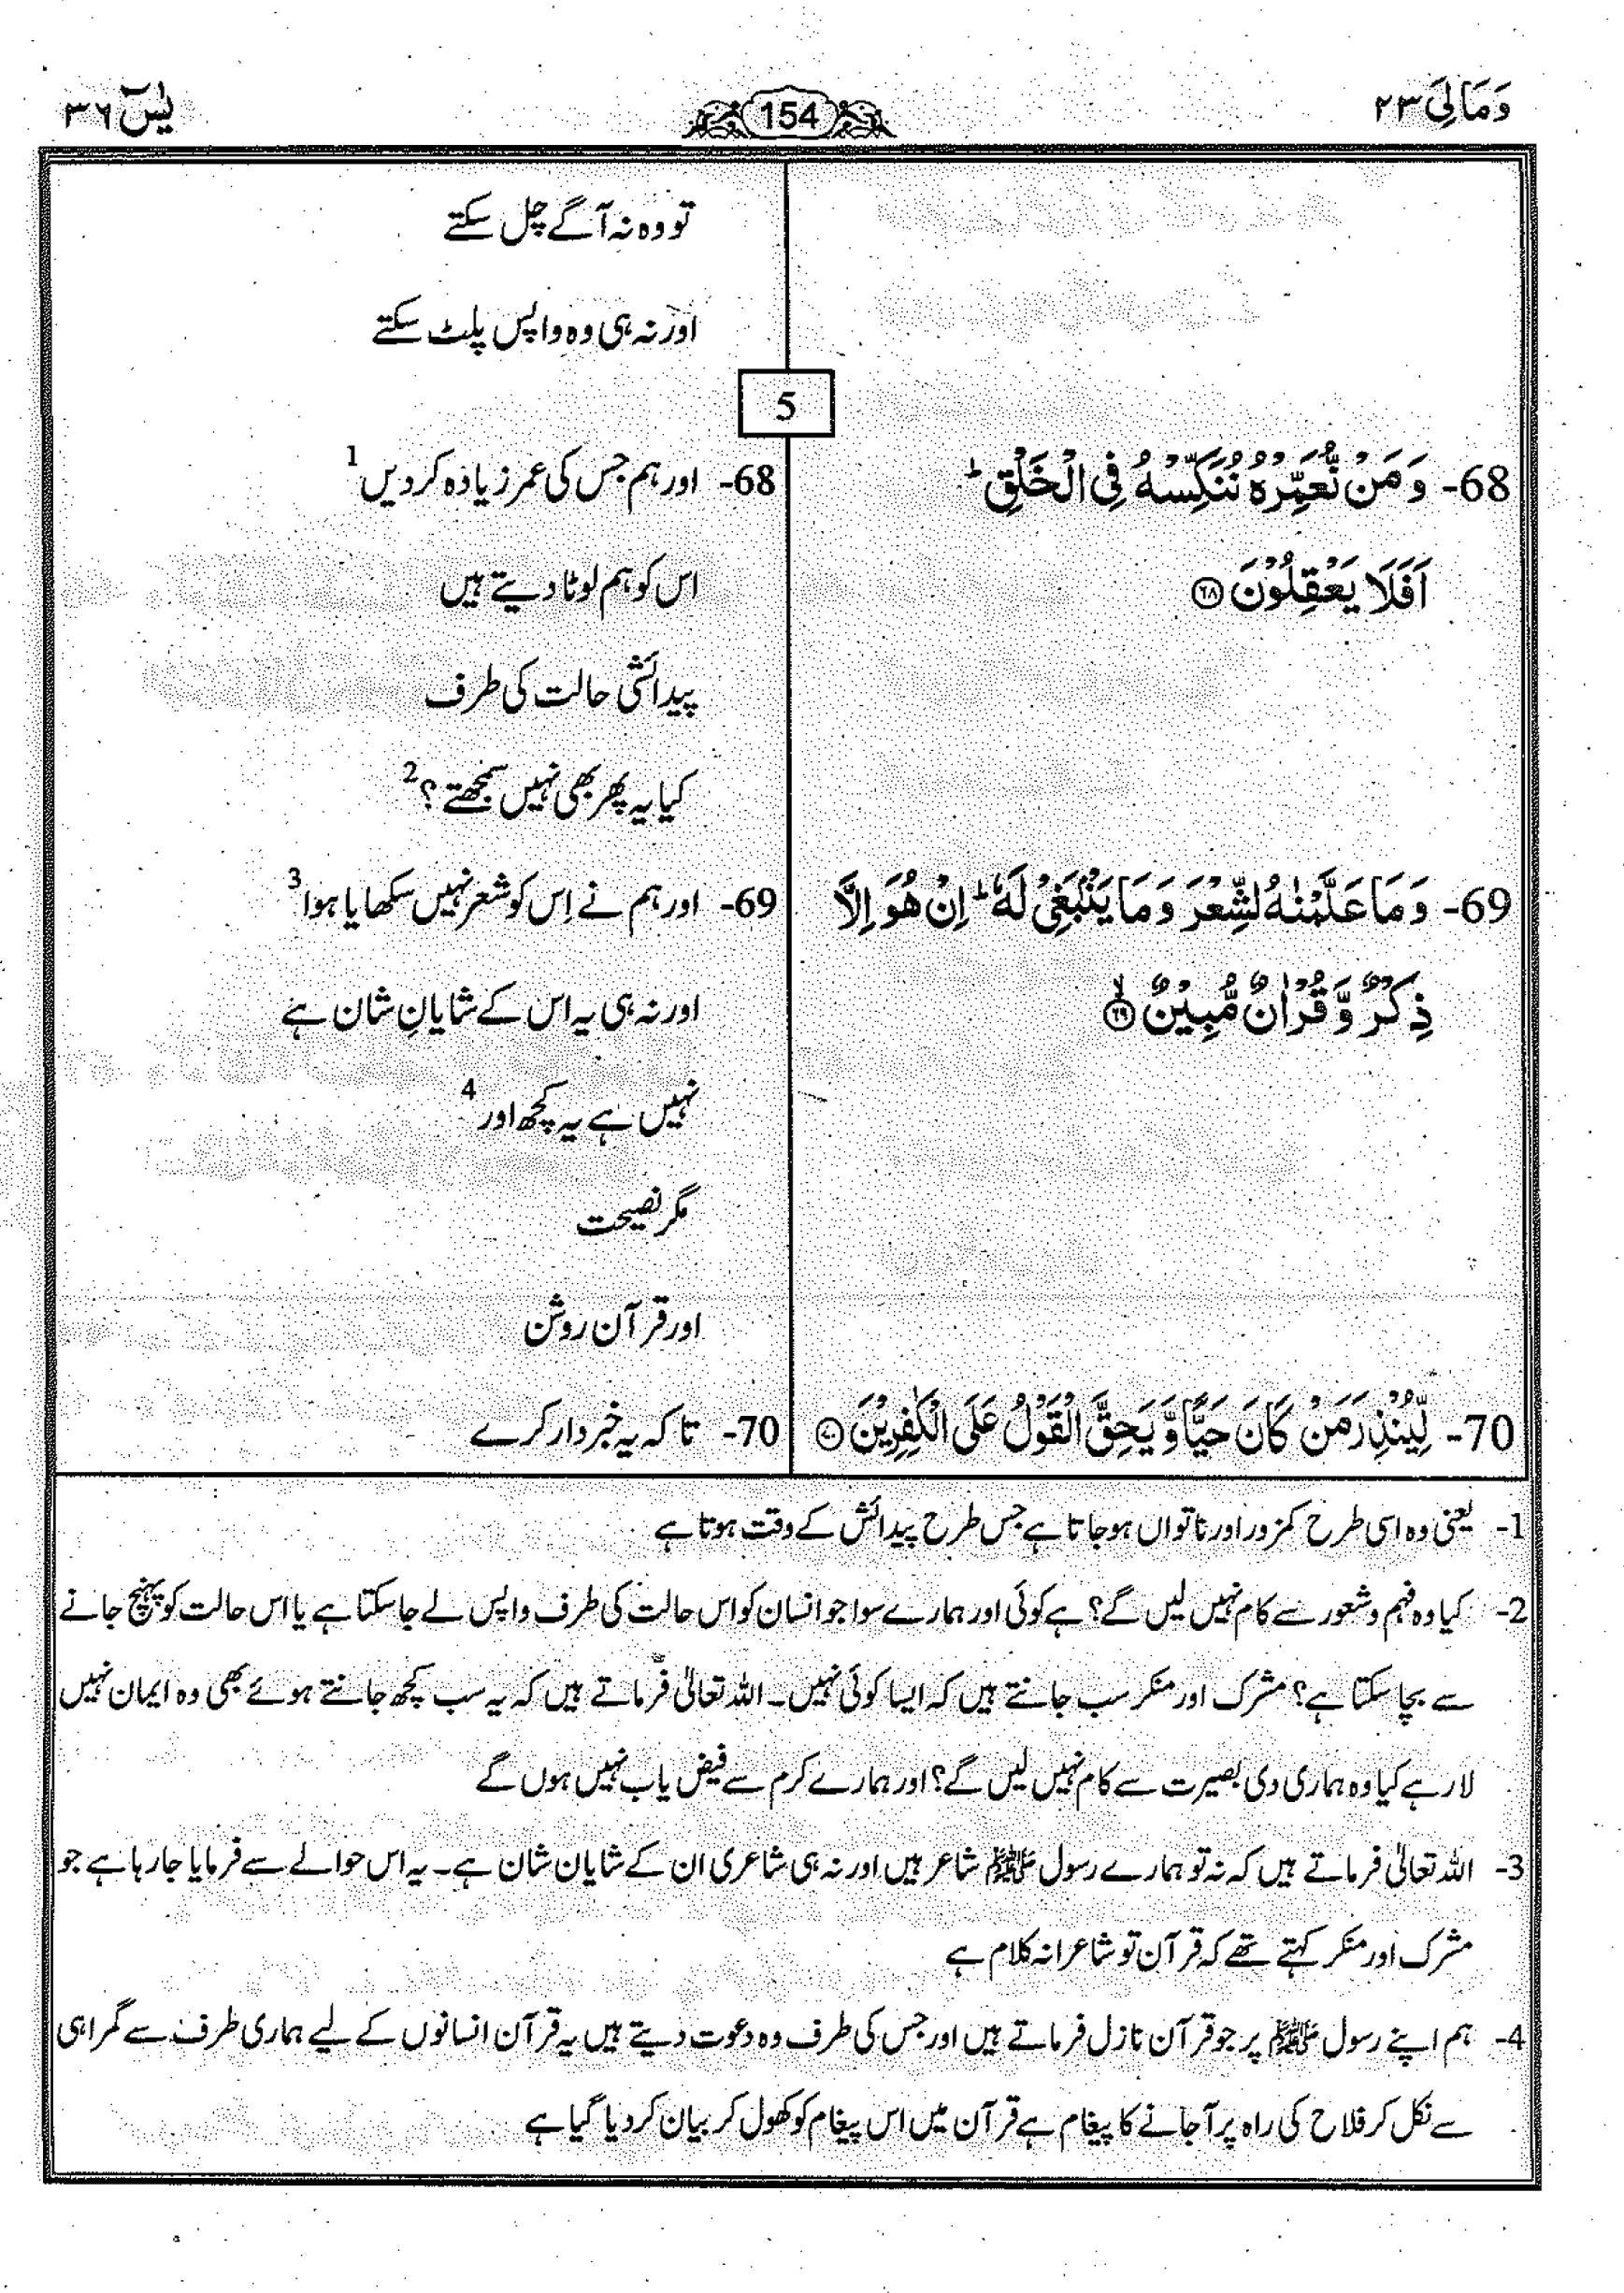 وَمَالِیَ ۲۳
154
یٰسٓ ۳۶
تو وہ نہ آگے چل سکتے
اور نہ ہی وہ واپس پلٹ سکتے
5
68- وَمَنْ نُّعَمِّرْهُ نُنَكِّسْهُ فِی الْخَلْقِ ؕ
اَفَلَا یَعْقِلُوْنَ ﴿۶۸﴾
68- اور ہم جس کی عمر زیادہ کردیں 1
اس کو ہم لوٹا دیتے ہیں
پیدائشی حالت کی طرف
کیا یہ پھر بھی نہیں سمجھتے؟ 2
69- وَمَا عَلَّمْنٰهُ الشِّعْرَ وَمَا یَنْۢبَغِیْ لَهٗ ؕ اِنْ هُوَ اِلَّا
ذِكْرٌ وَّقُرْاٰنٌ مُّبِیْنٌ ﴿۶۹﴾ۙ
69- اور ہم نے اِس کو شعر نہیں سکھایا ہوا 3
اور نہ ہی یہ اس کے شایانِ شان ہے
نہیں ہے یہ کچھ اور 4
مگر نصیحت
اور قرآن روشن
70- لِّیُنْذِرَ مَنْ كَانَ حَیًّا وَّیَحِقَّ الْقَوْلُ عَلَی الْكٰفِرِیْنَ ﴿۷۰﴾
70- تاکہ یہ خبردار کرے
1- یعنی وہ اسی طرح کمزور اور ناتواں ہو جاتا ہے جس طرح پیدائش کے وقت ہوتا ہے
2- کیا وہ فہم و شعور سے کام نہیں لیں گے؟ ہے کوئی اور ہمارے سوا جو انسان کو اس حالت کی طرف واپس لے جا سکتا ہے یا اس حالت کو پہنچ جانے
سے بچا سکتا ہے؟ مشرک اور منکر سب جانتے ہیں کہ ایسا کوئی نہیں۔ اللہ تعالیٰ فرماتے ہیں کہ یہ سب کچھ جانتے ہوئے بھی وہ ایمان نہیں
لا رہے کیا وہ ہماری دی بصیرت سے کام نہیں لیں گے؟ اور ہمارے کرم سے فیض یاب نہیں ہوں گے
3- اللہ تعالیٰ فرماتے ہیں کہ نہ تو ہمارے رسول ﷺ شاعر ہیں اور نہ ہی شاعری ان کے شایان شان ہے۔ یہ اس حوالے سے فرمایا جا رہا ہے جو
مشرک اور منکر کہتے تھے کہ قرآن تو شاعرانہ کلام ہے
4- ہم اپنے رسول ﷺ پر جو قرآن نازل فرماتے ہیں اور جس کی طرف وہ دعوت دیتے ہیں یہ قرآن انسانوں کے لیے ہماری طرف سے گمراہی
سے نکل کر فلاح کی راہ پر آجانے کا پیغام ہے قرآن میں اس پیغام کو کھول کر بیان کر دیا گیا ہے